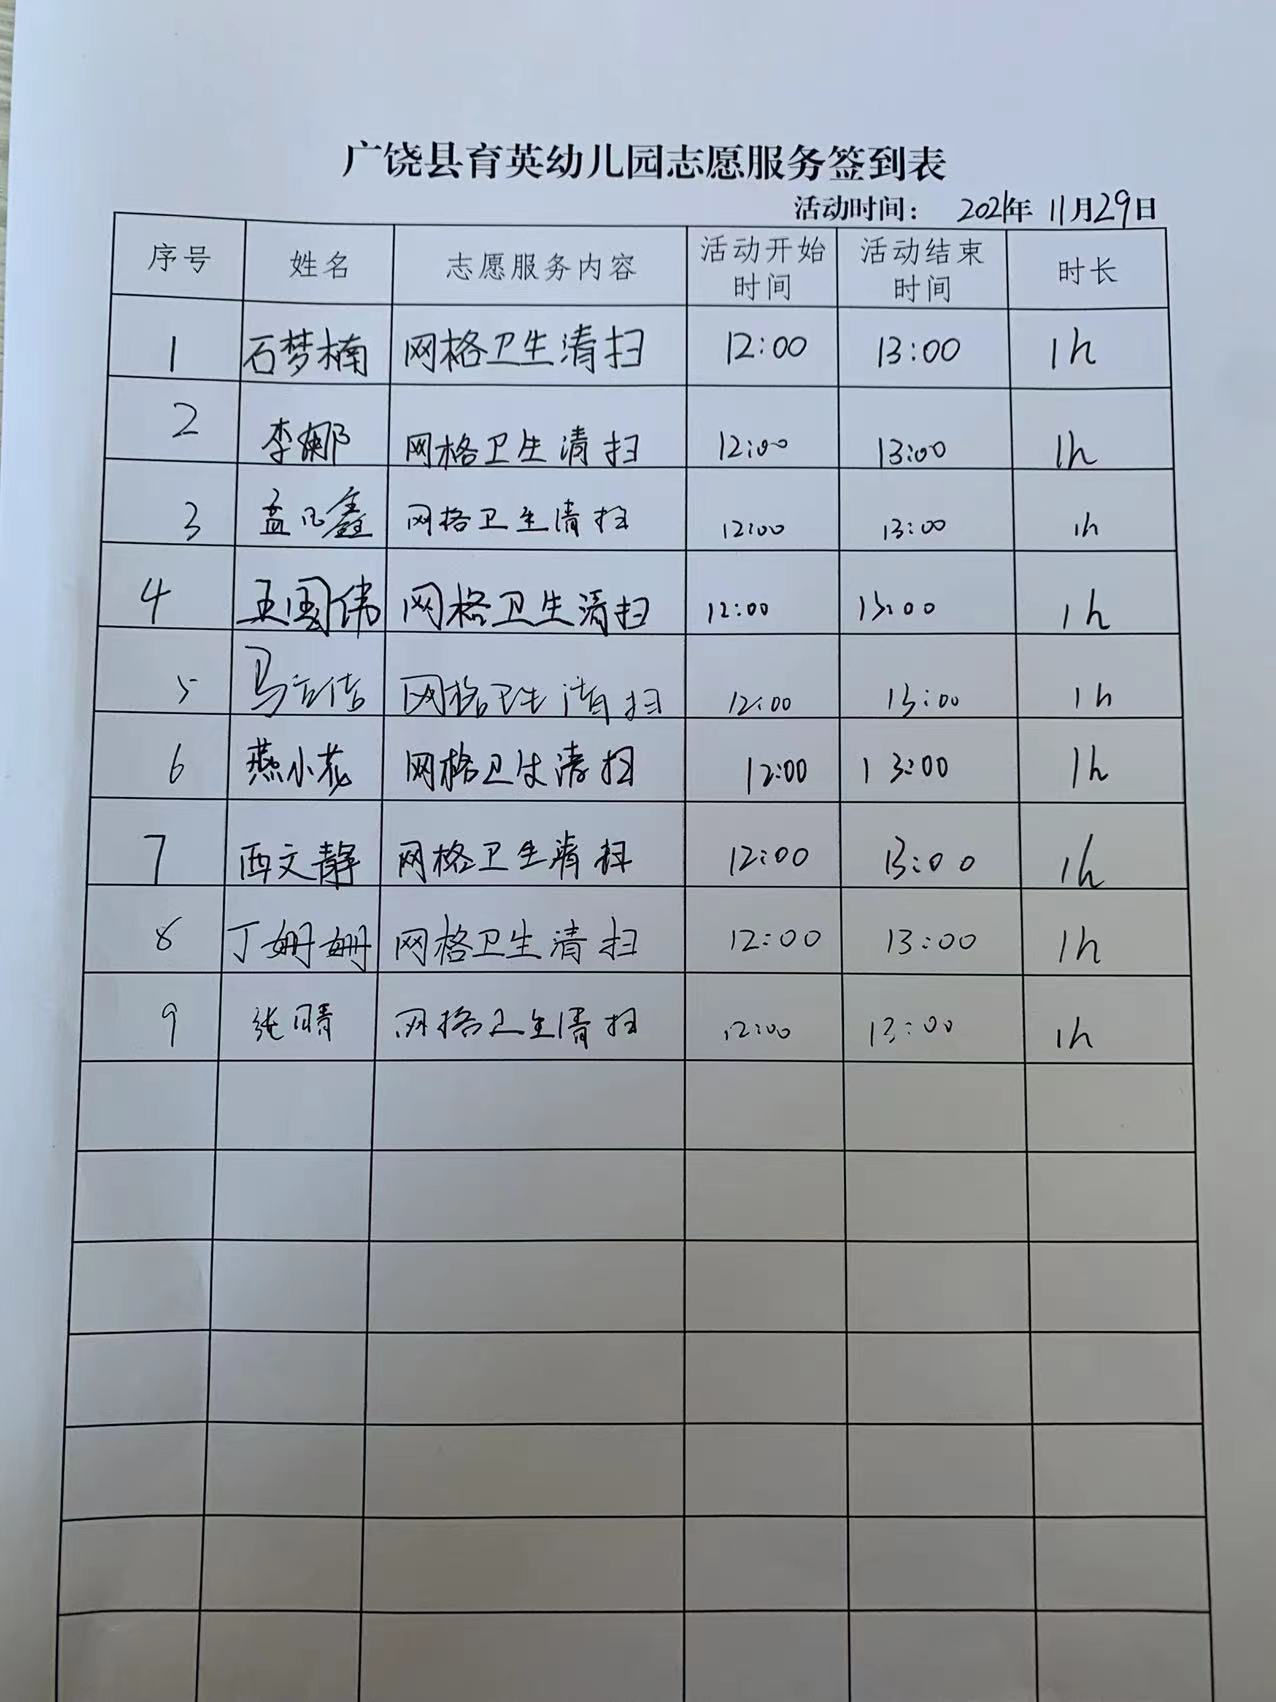 广饶县育英幼儿园志愿服务签到表
活动时间： 2021年 11月29日
序号 姓名 志愿服务内容 活动开始时间 活动结束时间 时长
1 石梦楠 网格卫生清扫 12:00 13:00 1h
2 李娜 网格卫生清扫 12:00 13:00 1h
3 孟凡鑫 网格卫生清扫 12:00 13:00 1h
4 王国伟 网格卫生清扫 12:00 13:00 1h
5 马 网格卫生清扫 12:00 13:00 1h
6 燕小花 网格卫生清扫 12:00 13:00 1h
7 西文静 网格卫生清扫 12:00 13:00 1h
8 丁姗姗 网格卫生清扫 12:00 13:00 1h
9 张晴 网格卫生清扫 12:00 13:00 1h